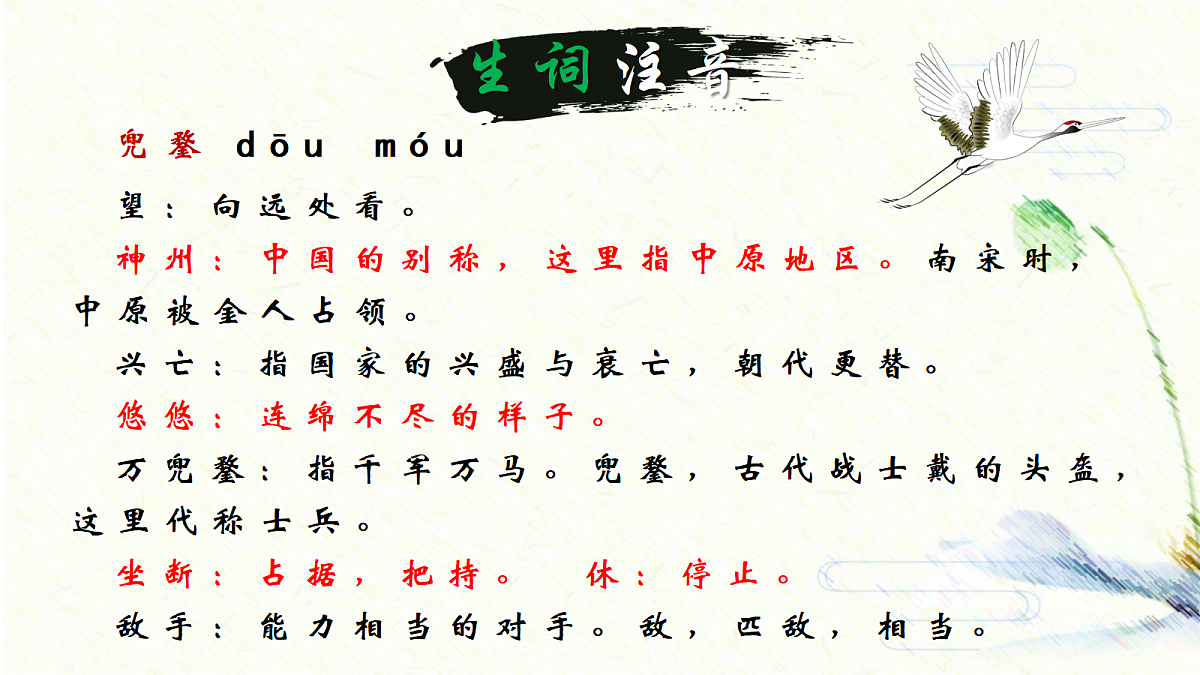 生词注音
兜鍪 dōu móu
望：向远处看。
神州：中国的别称，这里指中原地区。南宋时，
中原被金人占领。
兴亡：指国家的兴盛与衰亡，朝代更替。
悠悠：连绵不尽的样子。
万兜鍪：指千军万马。兜鍪，古代战士戴的头盔，
这里代称士兵。
坐断：占据，把持。 休：停止。
敌手：能力相当的对手。敌，匹敌，相当。